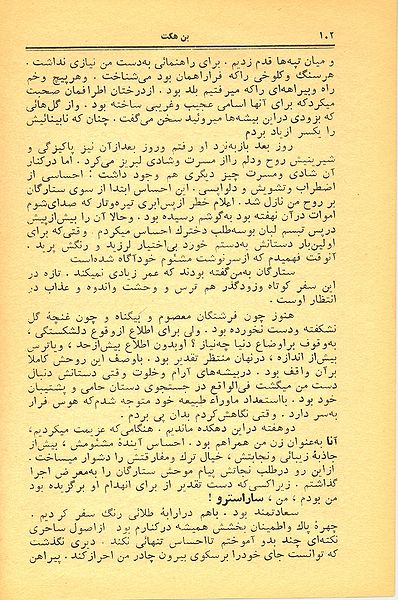 ۱۰۲
بن هکت
و میان تپه‌ها قدم زدیم . برای راهنمائی به‌دست من نیازی نداشت .
هرسنگ وکلوخی راکه فراراهمان بود می‌شناخت . وهرپیچ وخم
راه وبیراهه‌ای راکه میرفتیم بلد بود . ازدرختان اطرافمان صحبت
میکردکه برای آنها اسامی عجیب وغریبی ساخته بود . واز گل‌هائی
که بزودی دراین بیشه‌ها میروئید سخن می‌گفت . چنان که نابینائیش
را یکسر ازیاد بردم
روز بعد بازبه‌نزد او رفتم وروز بعدازآن نیز پاکیزگی و
شیرینیش روح ودلم رااز مسرت وشادی لبریز می‌کرد . اما درکنار
آن شادی ومسرت چیز دیگری هم وجود داشت : احساسی از
اضطراب وتشویش و دلواپسی . این احساس ابتدا از سوی ستارگان
بر روح من نازل شد . اعلام خطر ازپس‌ابری تیره‌وتار که صدای‌شوم
اموات درآن نهفته بود به‌گوشم رسیده بود . وحالا آن را بیش‌ازپیش
درپس تبسم لبان بوسه‌طلب دخترك احساس میکردم . وقتی‌که برای
اولین‌بار دستانش به‌دستم خورد بی‌اختیار لرزید و رنگش پرید .
آنوقت فهمیدم که ازسرنوشت مشئوم خودآگاه شده‌است
ستارگان به‌من‌گفته بودند که عمر زیادی نمیکند . تازه در
این سفر کوتاه وزودگذر هم ترس و وحشت واندوه و عذاب در
انتظار اوست .
هنوز چون فرشتگان معصوم و بیگناه و چون غنچهٔ گل
نشکفته ودست نخورده بود . ولی برای اطلاع ازوقوع دلشکستگی ،
به‌وقوف براوضاع دنیا چه‌نیاز ؟ اوبدون اطلاع بیش‌ازحد ، وباترس
بیش‌از اندازه ، درنهان منتظر تقدیر بود . باوصف این روحش کاملا
برآن واقف بود . دربیشه‌های آرام وخلوت وقتی دستانش دنبال
دست من میگشت فی‌الواقع در جستجوی دستان حامی و پشتیبان
خود بود . بااستعداد ماوراء طبیعه خود متوجه شدم‌که هوس فرار
به‌سر دارد . وقتی نگاهش‌کردم بدان پی بردم .
دوهفته دراین دهکده ماندیم . هنگامی‌که عزیمت میکردیم،
آنا به‌عنوان زن من همراهم بود . احساس آیندهٔ مشئومش ، بیش‌از
جاذبهٔ زیبائی ونجابتش ، خیال ترك ومفارقتش را دشوار میساخت .
ازاین رو درطلب نجاتش پیام موحش ستارگان را به‌معرض اجرا
گذاشتم . زیراکسی‌که دست تقدیر از برای انهدام او برگزیده بود
من بودم ، من ، ساراسترو !
سعادتمند بود . باهم درارابهٔ طلائی رنگ سفر کردیم .
چهرهٔ پاك واطمینان بخشش همیشه درکنارم بود ازاصول ساحری
نکته‌ای چند بدو آموختم تااحساس تنهائی نکند . دیری نگذشت
که توانست جای خودرا برسکوی بیرون چادر من احرازکند . پیراهن